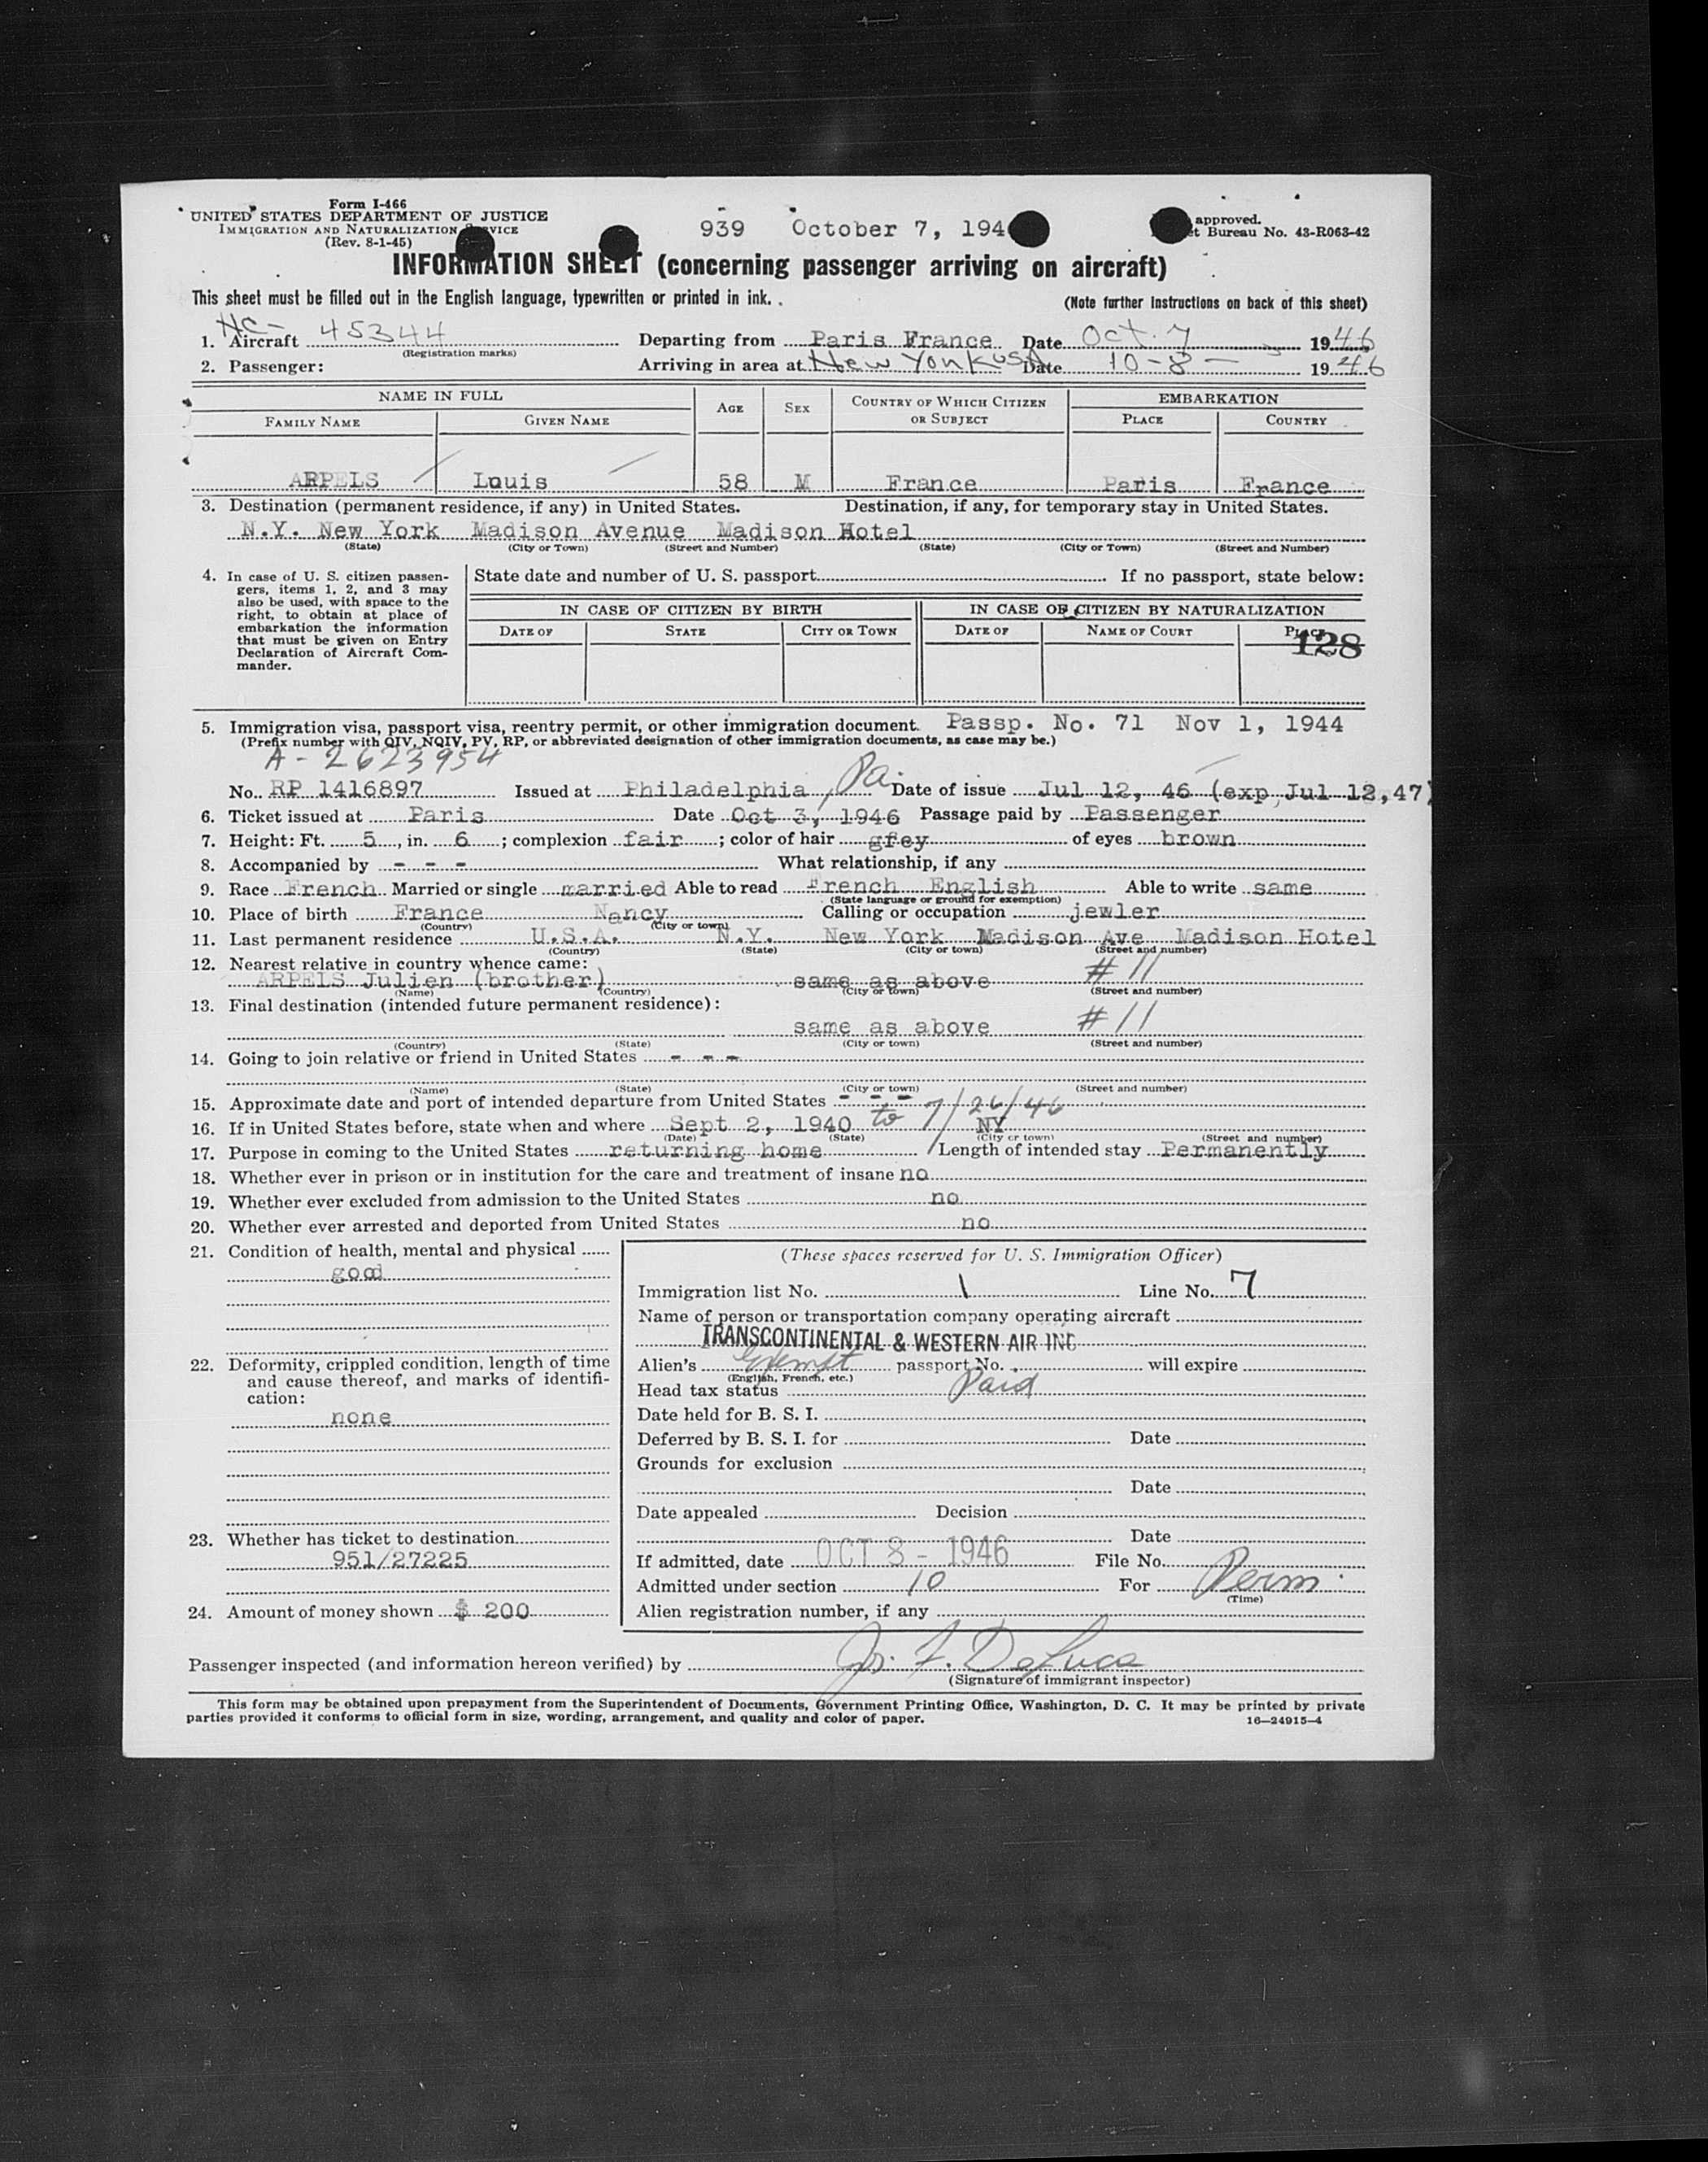 Form I-466
UNITED STATES DEPARTMENT OF JUSTICE
IMMIGRATION AND NATURALIZATION SERVICE
(Rev. 8-1-45)
939 October 7, 194
approved.
et Bureau No. 43-R063-42
INFORMATION SHEET (concerning passenger arriving on aircraft)
This sheet must be filled out in the English language, typewritten or printed in ink.
(Note further instructions on back of this sheet)
1. Aircraft NC- 45344 Departing from Paris France Date Oct. 7 1946
(Registration marks)
2. Passenger: Arriving in area at New York USA Date 10-8- 1946
NAME IN FULL AGE SEX COUNTRY OF WHICH CITIZEN OR SUBJECT EMBARKATION
FAMILY NAME GIVEN NAME PLACE COUNTRY
ARPELS Louis 58 M France Paris France
3. Destination (permanent residence, if any) in United States. Destination, if any, for temporary stay in United States.
N.Y. New York Madison Avenue Madison Hotel
(State) (City or Town) (Street and Number) (State) (City or Town) (Street and Number)
4. In case of U. S. citizen passen-
gers, items 1, 2, and 3 may
also be used, with space to the
right, to obtain at place of
embarkation the information
that must be given on Entry
Declaration of Aircraft Com-
mander.
State date and number of U. S. passport If no passport, state below:
IN CASE OF CITIZEN BY BIRTH IN CASE OF CITIZEN BY NATURALIZATION
DATE OF STATE CITY OR TOWN DATE OF NAME OF COURT PLACE
128
5. Immigration visa, passport visa, reentry permit, or other immigration document. Passp. No. 71 Nov 1, 1944
(Prefix number with QIV, NQIV, PV, RP, or abbreviated designation of other immigration documents, as case may be.)
A-2623954
No. RP 1416897 Issued at Philadelphia, Pa. Date of issue Jul 12, 46 (exp Jul 12,47)
6. Ticket issued at Paris Date Oct 3, 1946 Passage paid by Passenger
7. Height: Ft. 5, in. 6; complexion fair; color of hair grey of eyes brown
8. Accompanied by - - - What relationship, if any
9. Race French Married or single married Able to read French English Able to write same
(State language or ground for exemption)
10. Place of birth France Nancy Calling or occupation jewler
(Country) (City or town)
11. Last permanent residence U.S.A. N.Y. New York Madison Ave Madison Hotel
(Country) (State) (City or town) (Street and number)
12. Nearest relative in country whence came:
ARPELS Julien (brother) same as above #11
(Name) (Country) (City or town) (Street and number)
13. Final destination (intended future permanent residence):
same as above #11
(Country) (State) (City or town) (Street and number)
14. Going to join relative or friend in United States - - -
(Name) (State) (City or town) (Street and number)
15. Approximate date and port of intended departure from United States - - -
16. If in United States before, state when and where Sept 2, 1940 to 7/26/46 NY
(Date) (State) (City or town) (Street and number)
17. Purpose in coming to the United States returning home Length of intended stay Permanently
18. Whether ever in prison or in institution for the care and treatment of insane no
19. Whether ever excluded from admission to the United States no
20. Whether ever arrested and deported from United States no
21. Condition of health, mental and physical
good
22. Deformity, crippled condition, length of time
and cause thereof, and marks of identifi-
cation:
none
23. Whether has ticket to destination
951/27225
24. Amount of money shown $ 200
(These spaces reserved for U. S. Immigration Officer)
Immigration list No. 1 Line No. 7
Name of person or transportation company operating aircraft
TRANSCONTINENTAL & WESTERN AIR INC
Alien's Exempt passport No. will expire
(English, French, etc.)
Head tax status Paid
Date held for B. S. I.
Deferred by B. S. I. for Date
Grounds for exclusion
Date
Date appealed Decision
Date
If admitted, date OCT 8 - 1946 File No.
Admitted under section 10 For Perm.
(Time)
Alien registration number, if any
Passenger inspected (and information hereon verified) by Jos. F. DeLuca
(Signature of immigrant inspector)
This form may be obtained upon prepayment from the Superintendent of Documents, Government Printing Office, Washington, D. C. It may be printed by private
parties provided it conforms to official form in size, wording, arrangement, and quality and color of paper.
16-24915-4